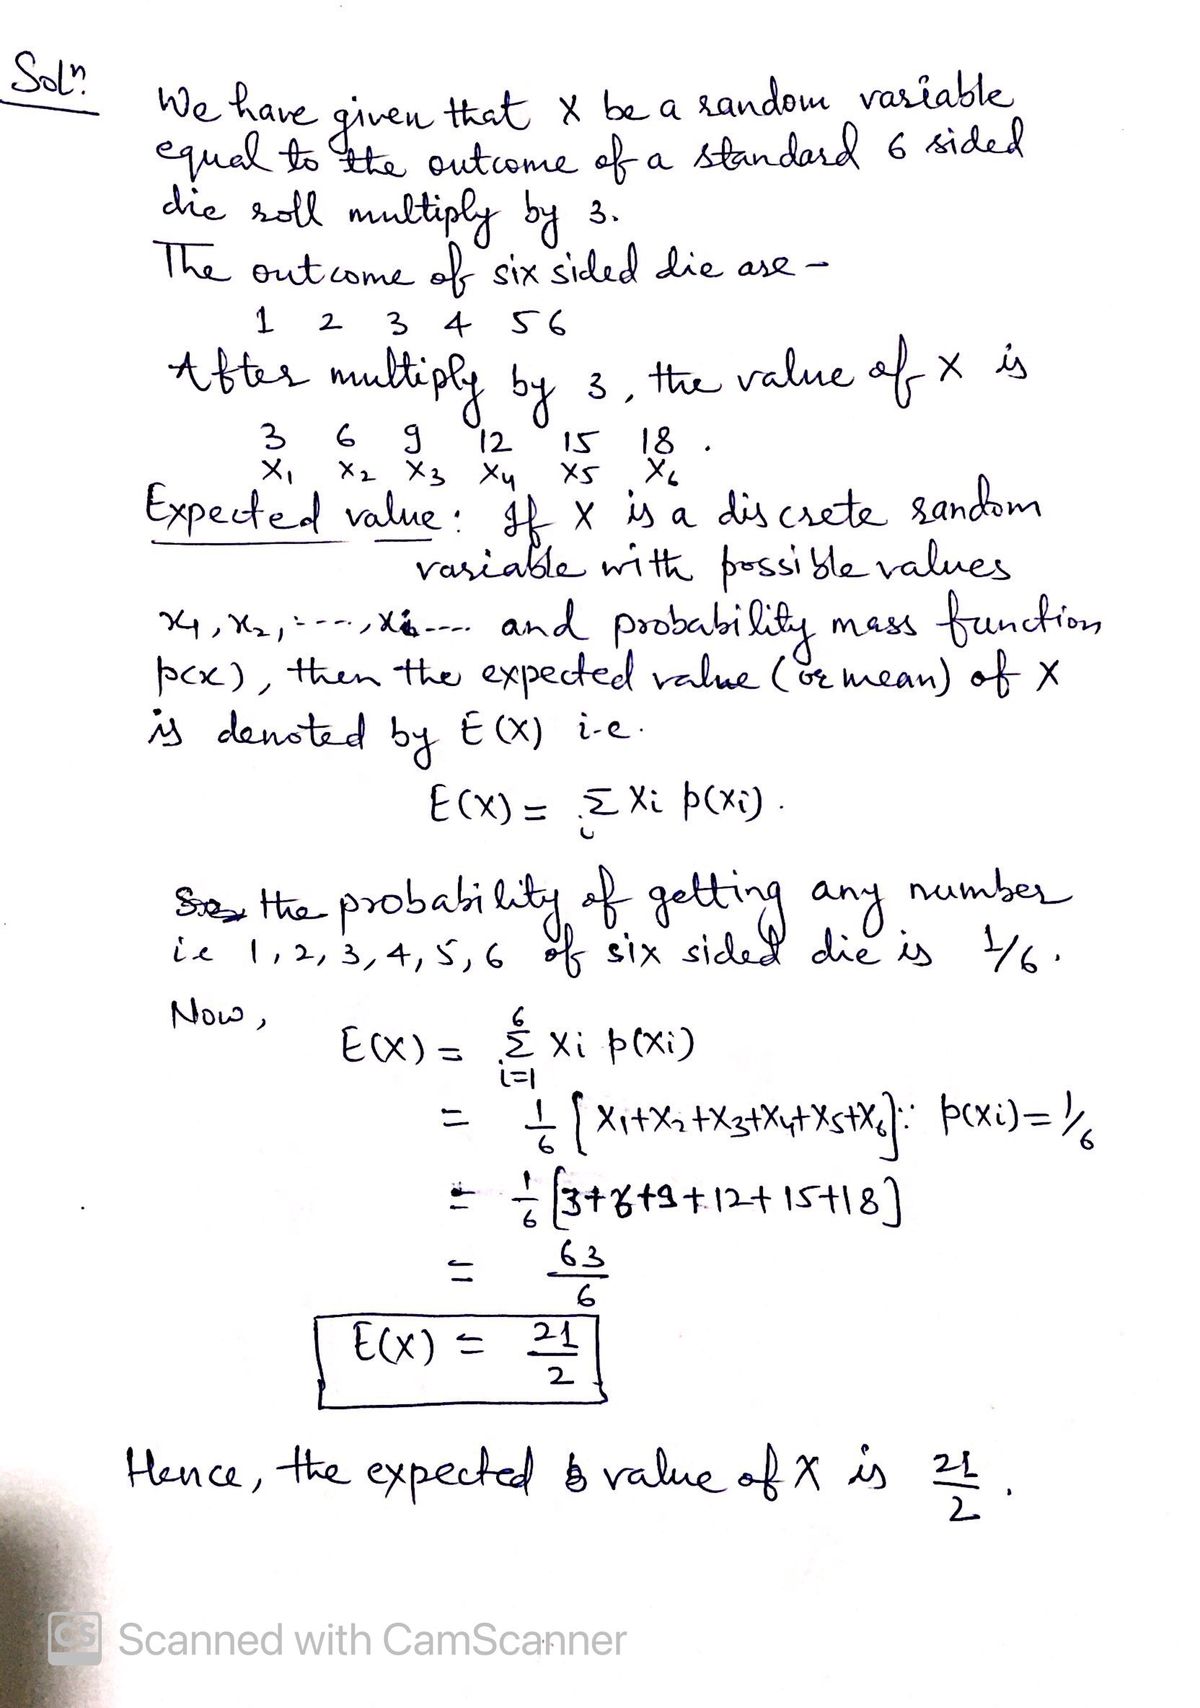 Solⁿ:
We have given that X be a random variable
equal to the outcome of a standard 6 sided
die roll multiply by 3.
The outcome of six sided die are -
1 2 3 4 5 6
After multiply by 3, the value of X is
3 6 9 12 15 18 .
X₁ X₂ X₃ X₄ X5 X₆
Expected value: If X is a discrete random
variable with possible values
x₁, x₂, ----, xi---- and probability mass function
p(x), then the expected value (or mean) of X
is denoted by E(X) i-e.
E(X) = Σ Xi p(Xi) .
i
the probability of getting any number
i.e 1, 2, 3, 4, 5, 6 of six sided die is 1/6 .
Now,
E(X) = 6 Σ i=1 Xi p(Xi)
= 1/6 [X₁+X₂+X₃+X₄+X₅+X₆] ∵ p(xi) = 1/6
= 1/6 [3+6+9+12+15+18]
= 63/6
E(X) = 21/2
Hence, the expected value of X is 21/2 .
CS Scanned with CamScanner